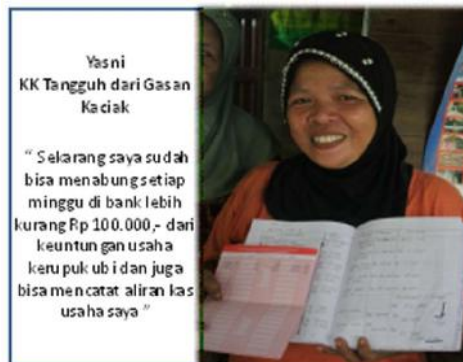 Yasni
KK Tangguh dari Gasan
Kaciak
“ Sekarang saya sudah
bisa menabung setiap
minggu di bank lebih
kurang Rp 100.000,- dari
keuntungan usaha
kerupuk ubi dan juga
bisa mencatat aliran kas
usaha saya ”